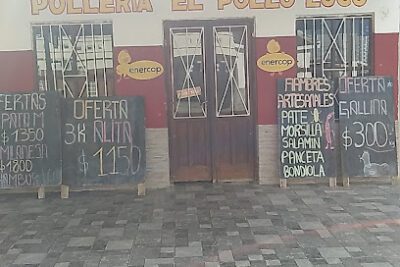 POLLERIA "EL POLLO LOCO"
enercop
enercop
OFERTAS
PATA M
$1350
MILANESA
$1800
OFERTA
3K ALITA
$1150
FIAMBRES
ARTESANALES
PATE
MORSILLA
SALAMIN
PANCETA
BONDIOLA
OFERTA
GALLINA
$300